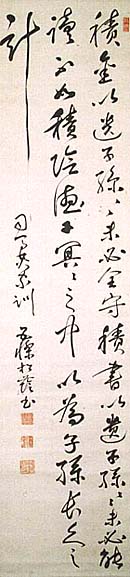 積金以遺子孫〻〻未必全守積書以遺子孫〻〻未必能
讀不如積陰德於冥〻之中以為子孫長久之
計
司馬公家訓